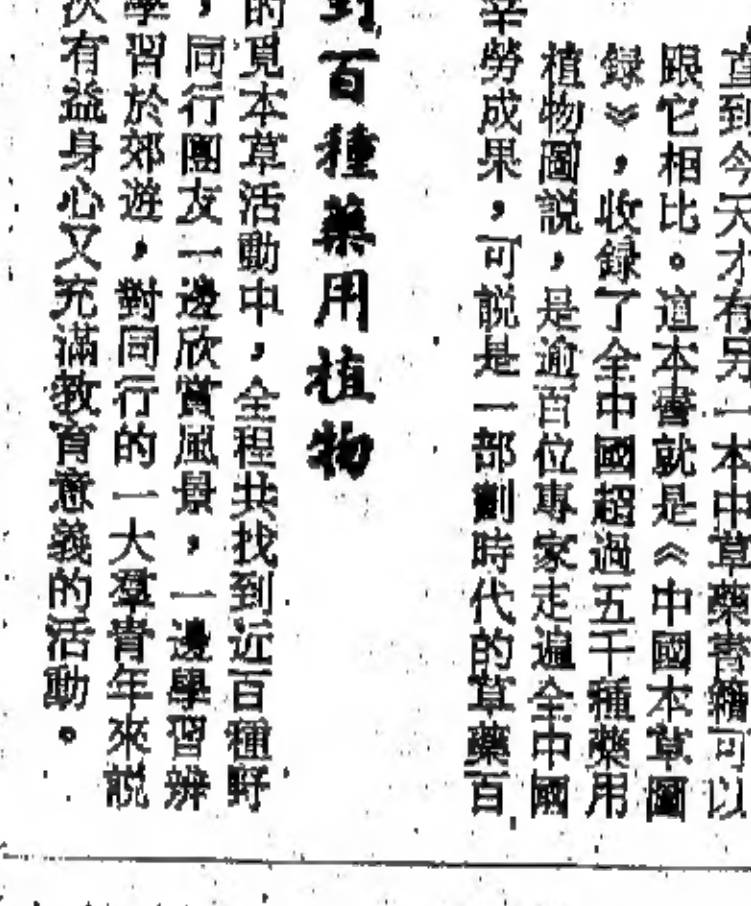 直到今天才有另一本中草藥書籍可以
跟它相比。這本書就是《中國本草圖
録》，收録了全中國超過五千種藥用
植物圖説，是逾百位專家走遍全中國
辛勞成果，可説是一部劃時代的草藥百
到百種藥用植物
的覓本草活動中，全程共找到近百種野
，同行團友一邊欣賞風景，一邊學習辨
學習於郊遊，對同行的一大羣青年來説
次有益身心又充滿教育意義的活動。